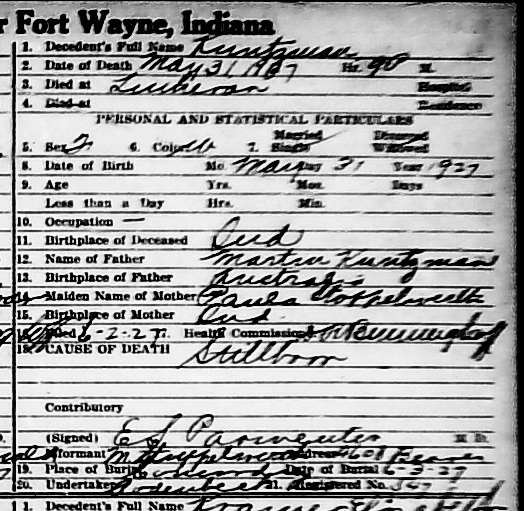 r Fort Wayne, Indiana
1. Decedent's Full Name Kuntzman
2. Date of Death May 31 1927 Hr. 9P M.
3. Died at Lutheran Hospital
4. Died at Residence
PERSONAL AND STATISTICAL PARTICULARS
Married Divorced
5. Sex F 6. Color W 7. Single Widowed
8. Date of Birth Mo. May Day 31 Year 1927
9. Age Yrs. Mos. Days
Less than a Day Hrs. Min.
10. Occupation —
11. Birthplace of Deceased Ind
12. Name of Father Martin Kuntzman
13. Birthplace of Father Australia
Maiden Name of Mother Paula
15. Birthplace of Mother Ind.
Filed 6-2-27 17. Health Commissioner
18. CAUSE OF DEATH Stillborn
Contributory
(Signed) E J Parmenter M. D.
Informant Address 4601 Beaver
19. Place of Burial Date of Burial 6-3-27
20. Undertaker 21. Registered No. 547
1. Decedent's Full Name